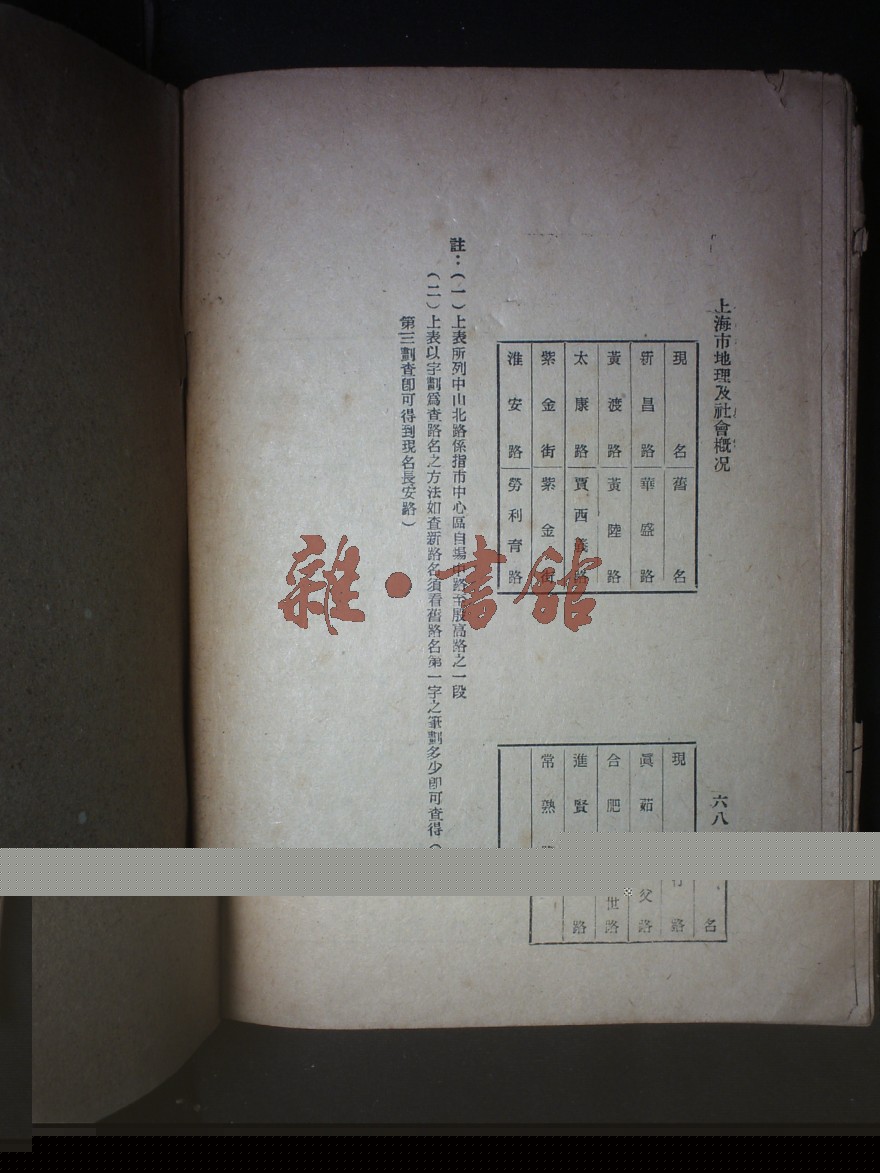 上海市地理及社會概況
六八
現名 舊名
新昌路 華盛路
黃渡路 黃陸路
太康路 賈西義路
紫金街 紫金街
淮安路 勞利育路
現
名
眞茹
路
父路
合肥
世路
進賢
路
常熟
註：(一)上表所列中山北路係指市中心區自場中路至殷高路之一段
(二)上表以字劃爲查路名之方法如查新路名須看舊路名第一字之筆劃多少卽可查得(
第三劃查卽可得到現名長安路)
雜·書館